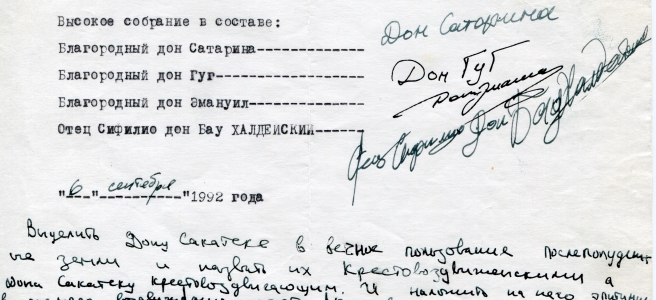 Высокое собрание в составе:
Дон Сатарина
Благородный дон Сатарина-------------
Благородный дон Гуг------------------
Дон Гуг
Благородный дон Эмануил--------------
Отец Сифилио дон Бау ХАЛДЕЙСКИЙ------
Отец Сифилио Дон Бау Халдейский
"6" сентября "1992 года
Выделить Дону Сакатеке в вечное пользование
на земли и назвать их Крестовоздвиженскими а
дона Сакатеку крестовоздвигающим. И наложить на него